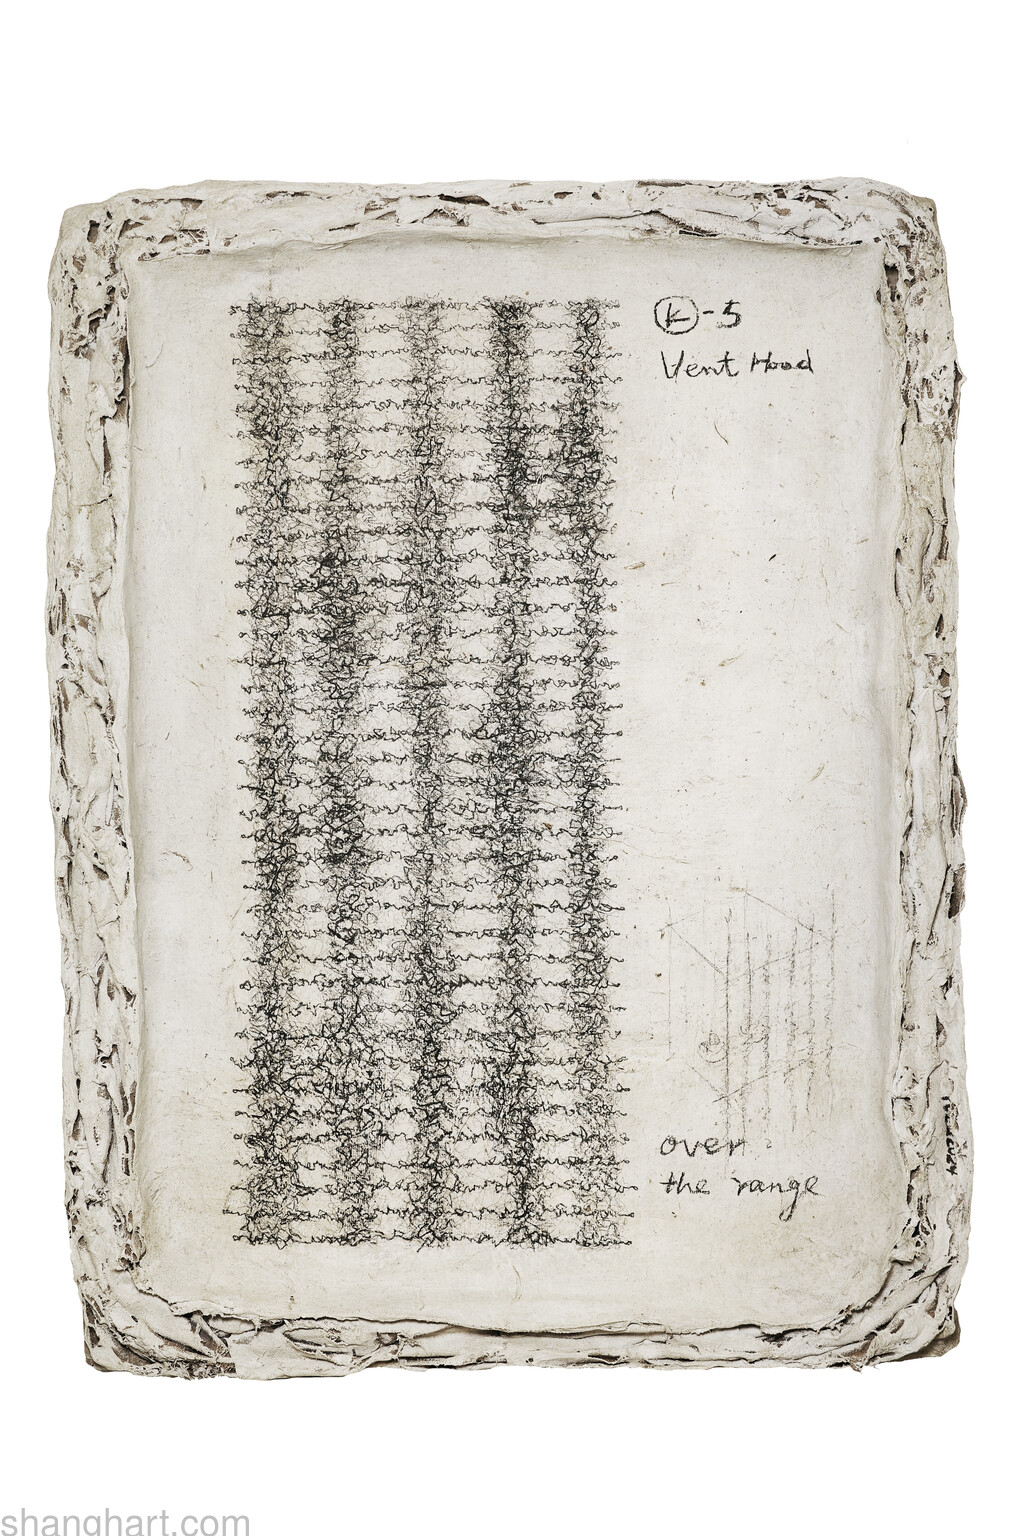 Ⓚ-5
Vent Hood
over
the range
shanghart.com